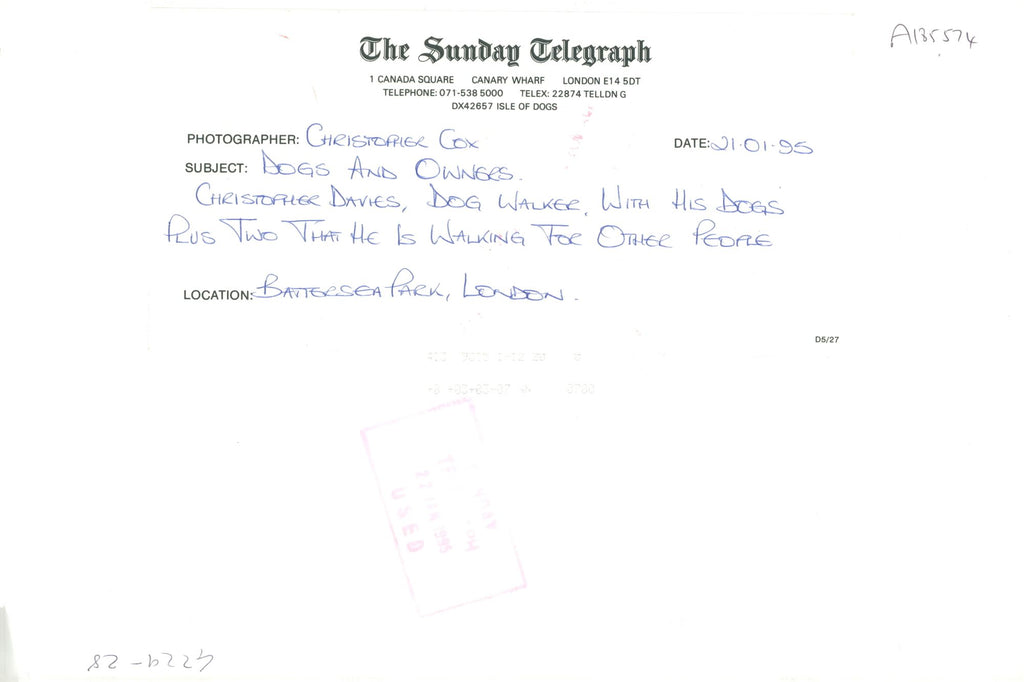 The Sunday Telegraph
A135574
1 CANADA SQUARE CANARY WHARF LONDON E14 5DT
TELEPHONE: 071-538 5000 TELEX: 22874 TELLDN G
DX42657 ISLE OF DOGS
PHOTOGRAPHER: CHRISTOPHER COX DATE: 21·01·95
SUBJECT: DOGS AND OWNERS.
CHRISTOPHER DAVIES, DOG WALKER, WITH HIS DOGS
PLUS TWO THAT HE IS WALKING FOR OTHER PEOPLE
LOCATION: BATTERSEA PARK, LONDON.
D5/27
1995
USED